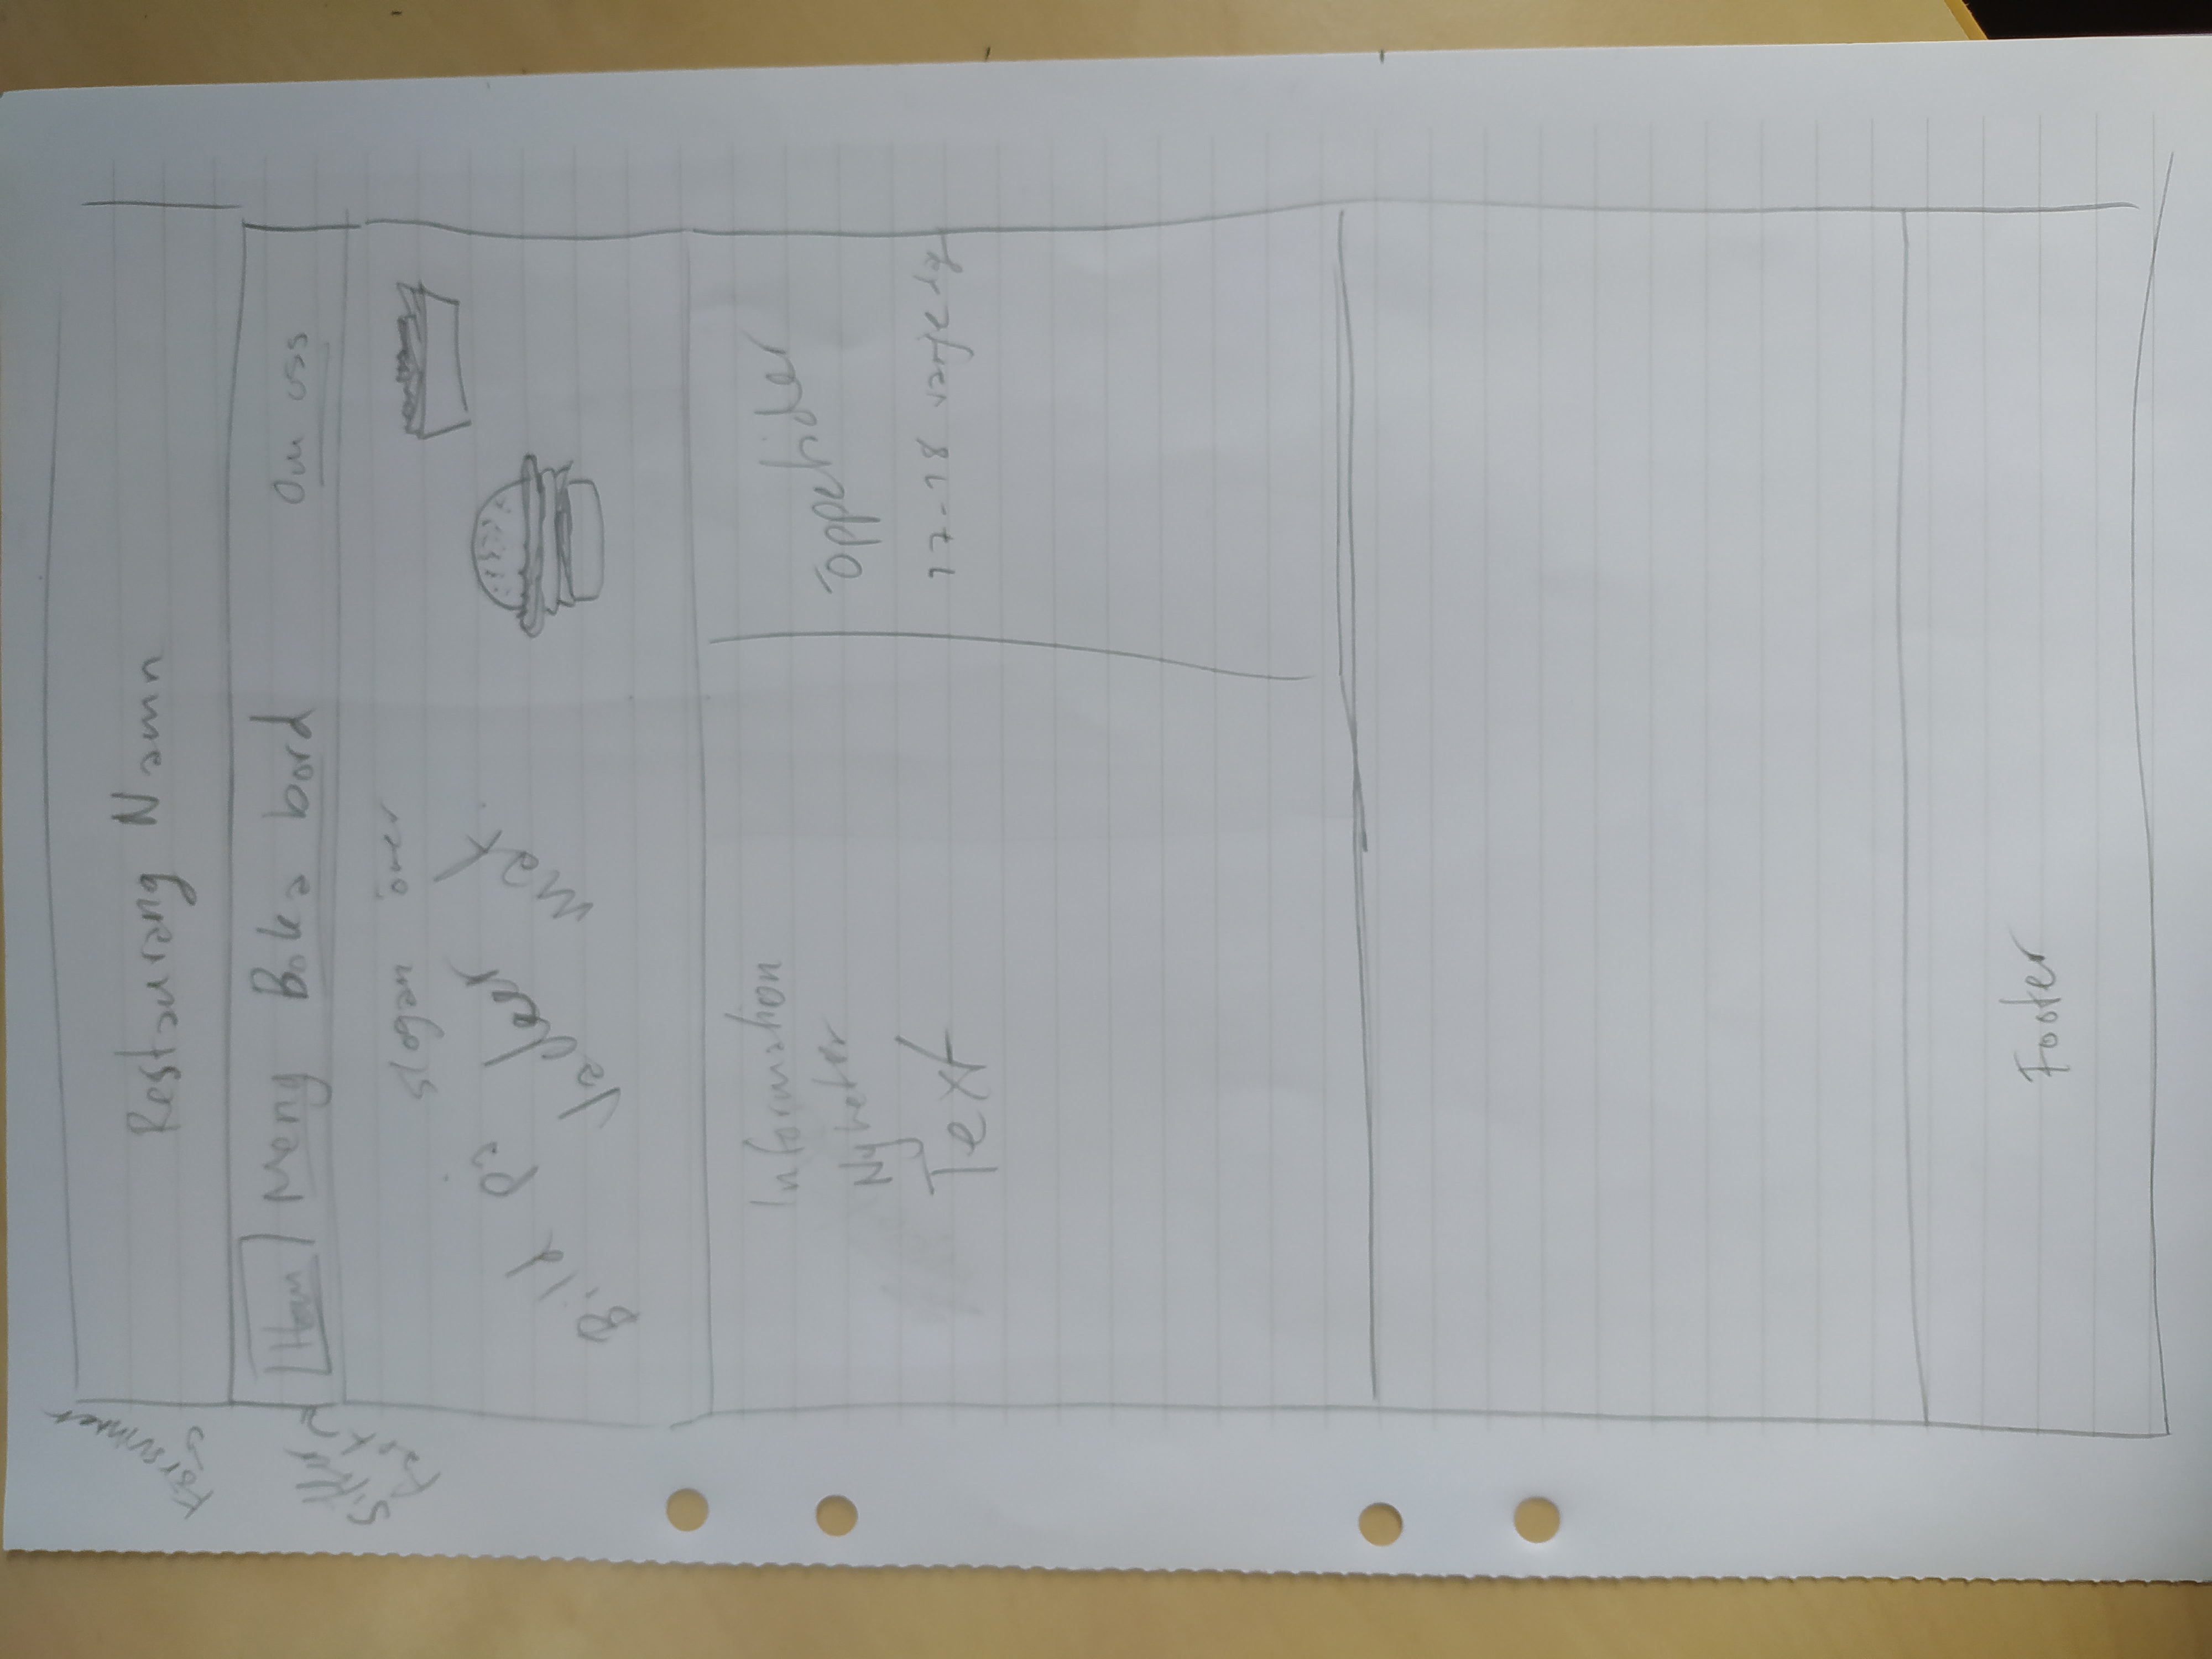 Försvinner
Restaurang Namn
Sitter fast
Hem Meny Boka bord Om oss
slogan över
Bild på vacker mat.
Information
Nyheter
Text
Öppetider
17-18 varje dag
Footer